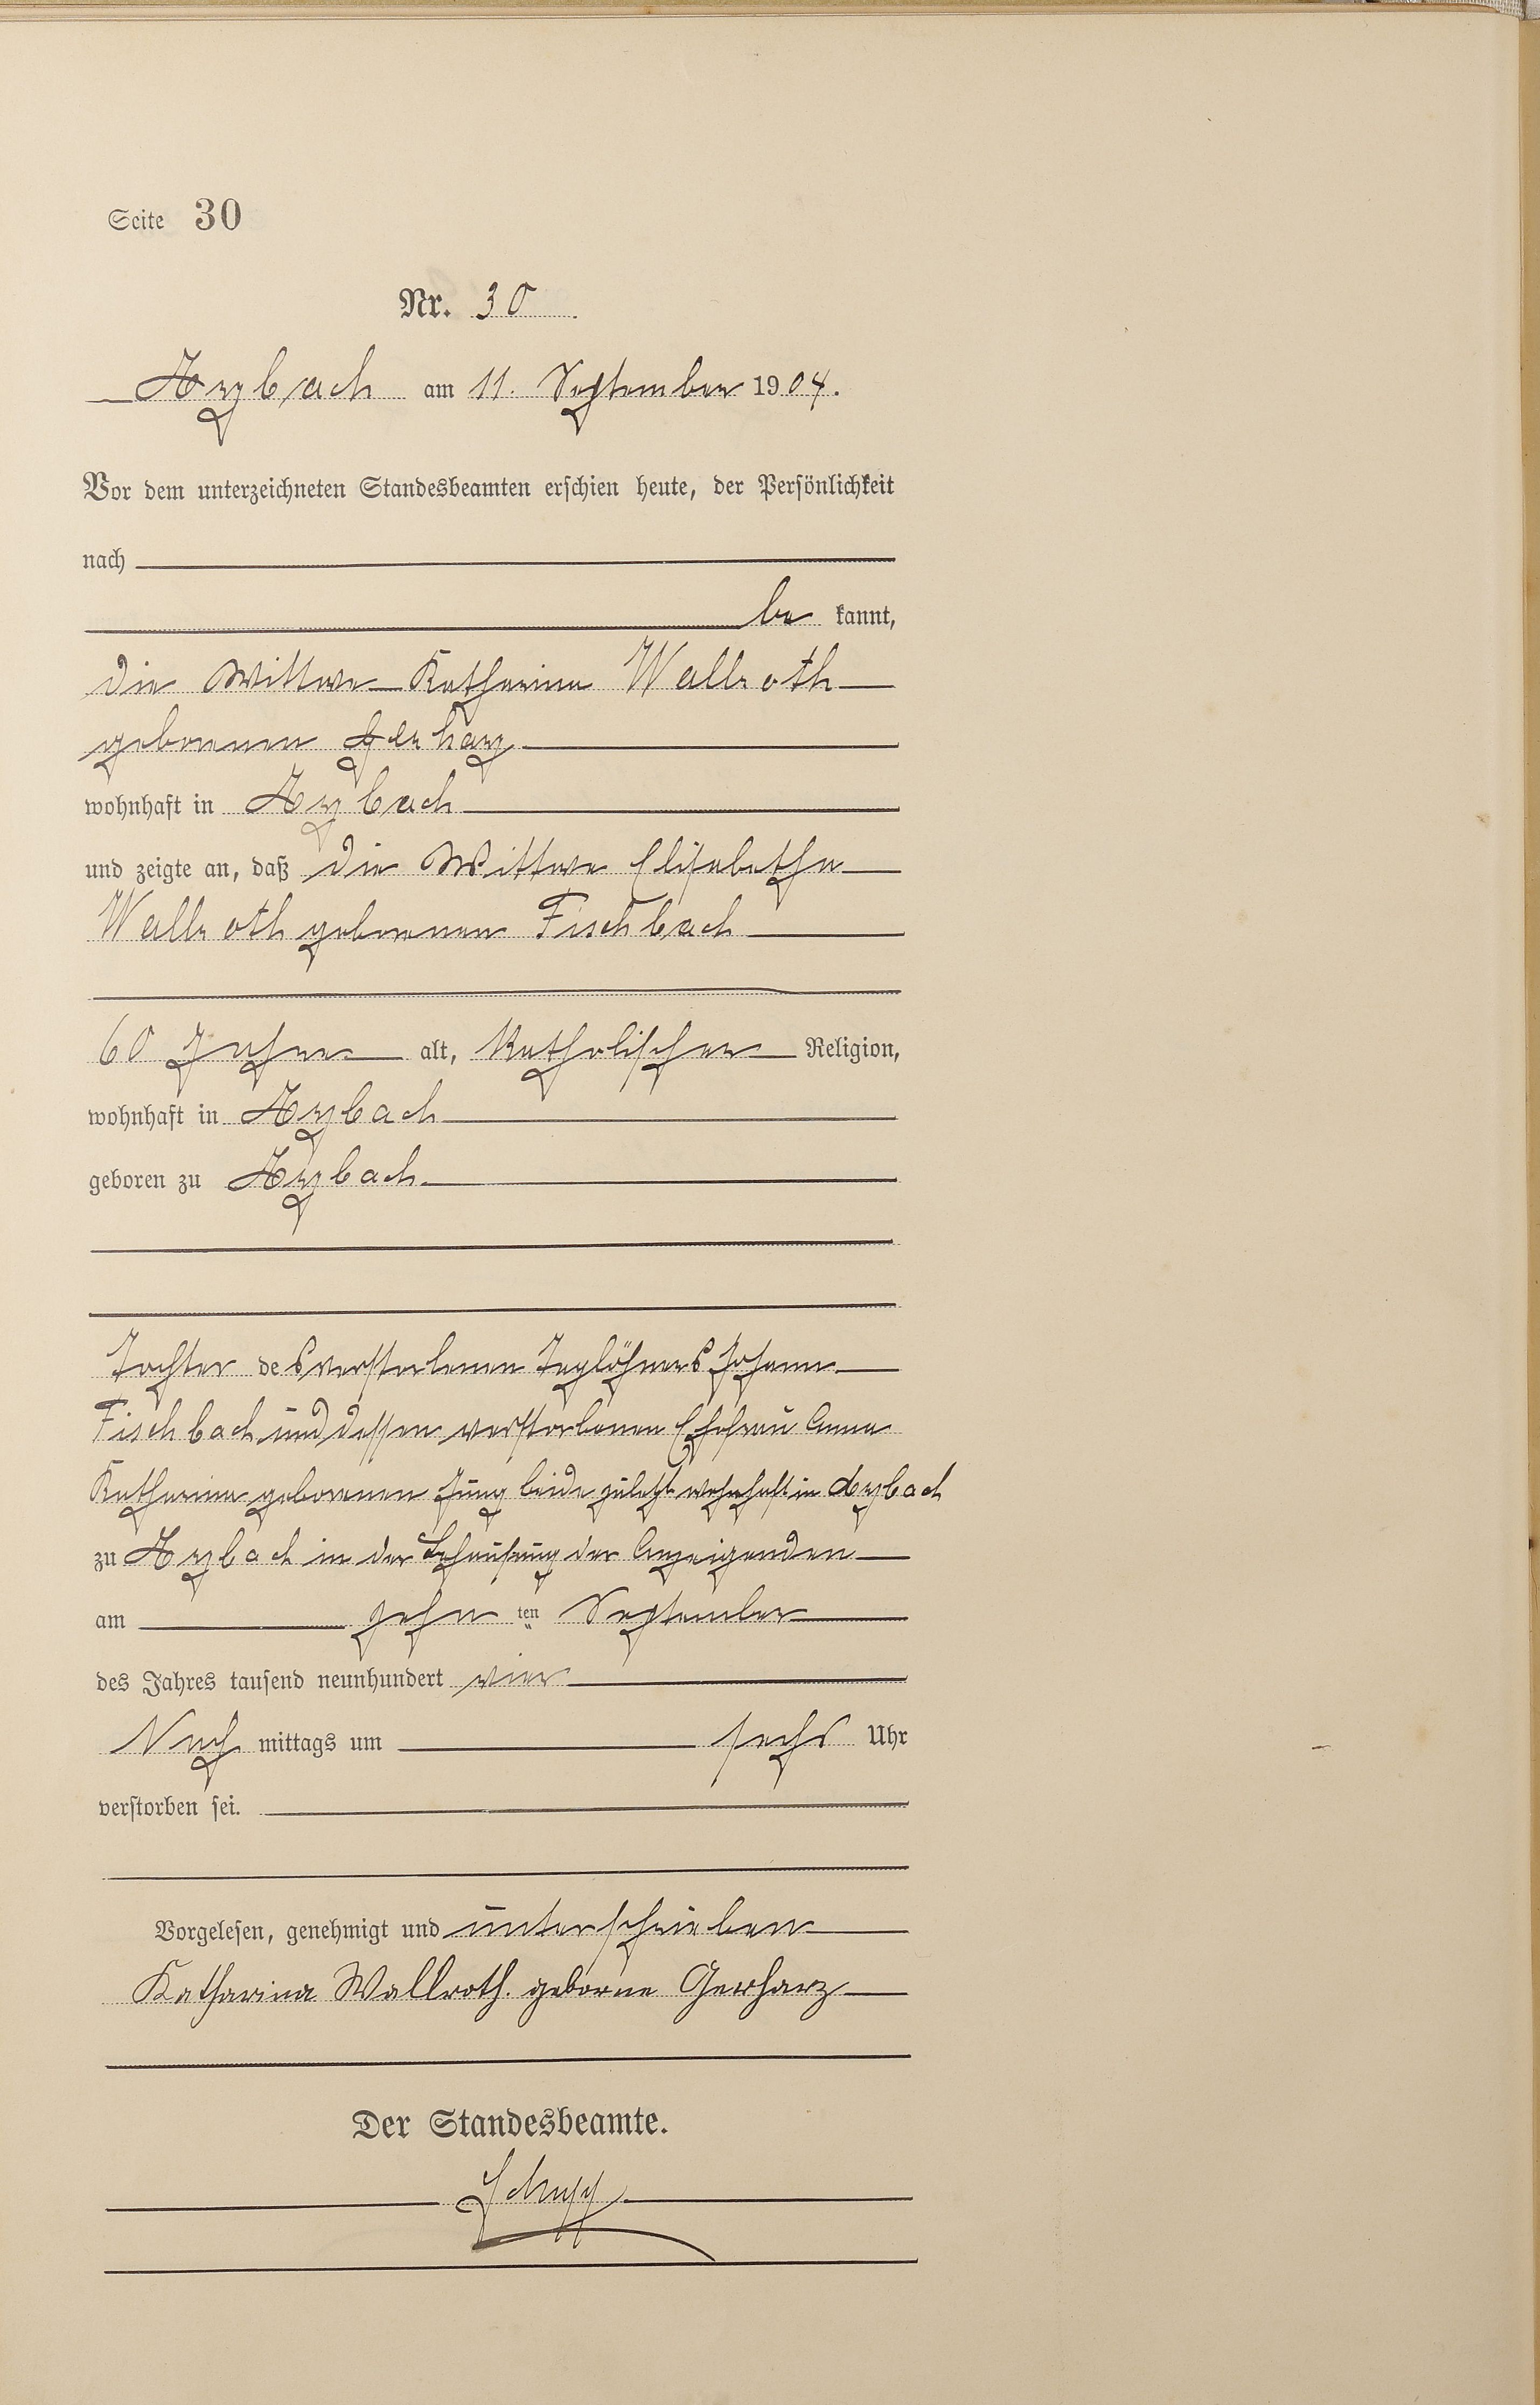 Seite 30
Nr. 30
Arzbach am 11. September 1904.
Vor dem unterzeichneten Standesbeamten erschien heute, der Persönlichkeit
nach
be kannt,
die Wittwe Katharina Wallroth
geborenen Gerharz
wohnhaft in Arzbach
und zeigte an, daß die Wittwe Elisabetha
Wallroth geborenen Fischbach
60 Jahre alt, Katholischer Religion,
wohnhaft in Arzbach
geboren zu Arzbach
Tochter des verstorbenen Taglöhners Johann
Fischbach und dessen verstorbenen Ehefrau Anna
Katharina geborenen Jung beide zuletzt wohnhaft in Arzbach
zu Arzbach in der Behausung der Anzeigenden
am zehn ten September
des Jahres tausend neunhundert vier
Nach mittags um sechs Uhr
verstorben sei.
Vorgelesen, genehmigt und unterschrieben
Katharina Wallroth. geborne Gerharz
Der Standesbeamte.
Schupp